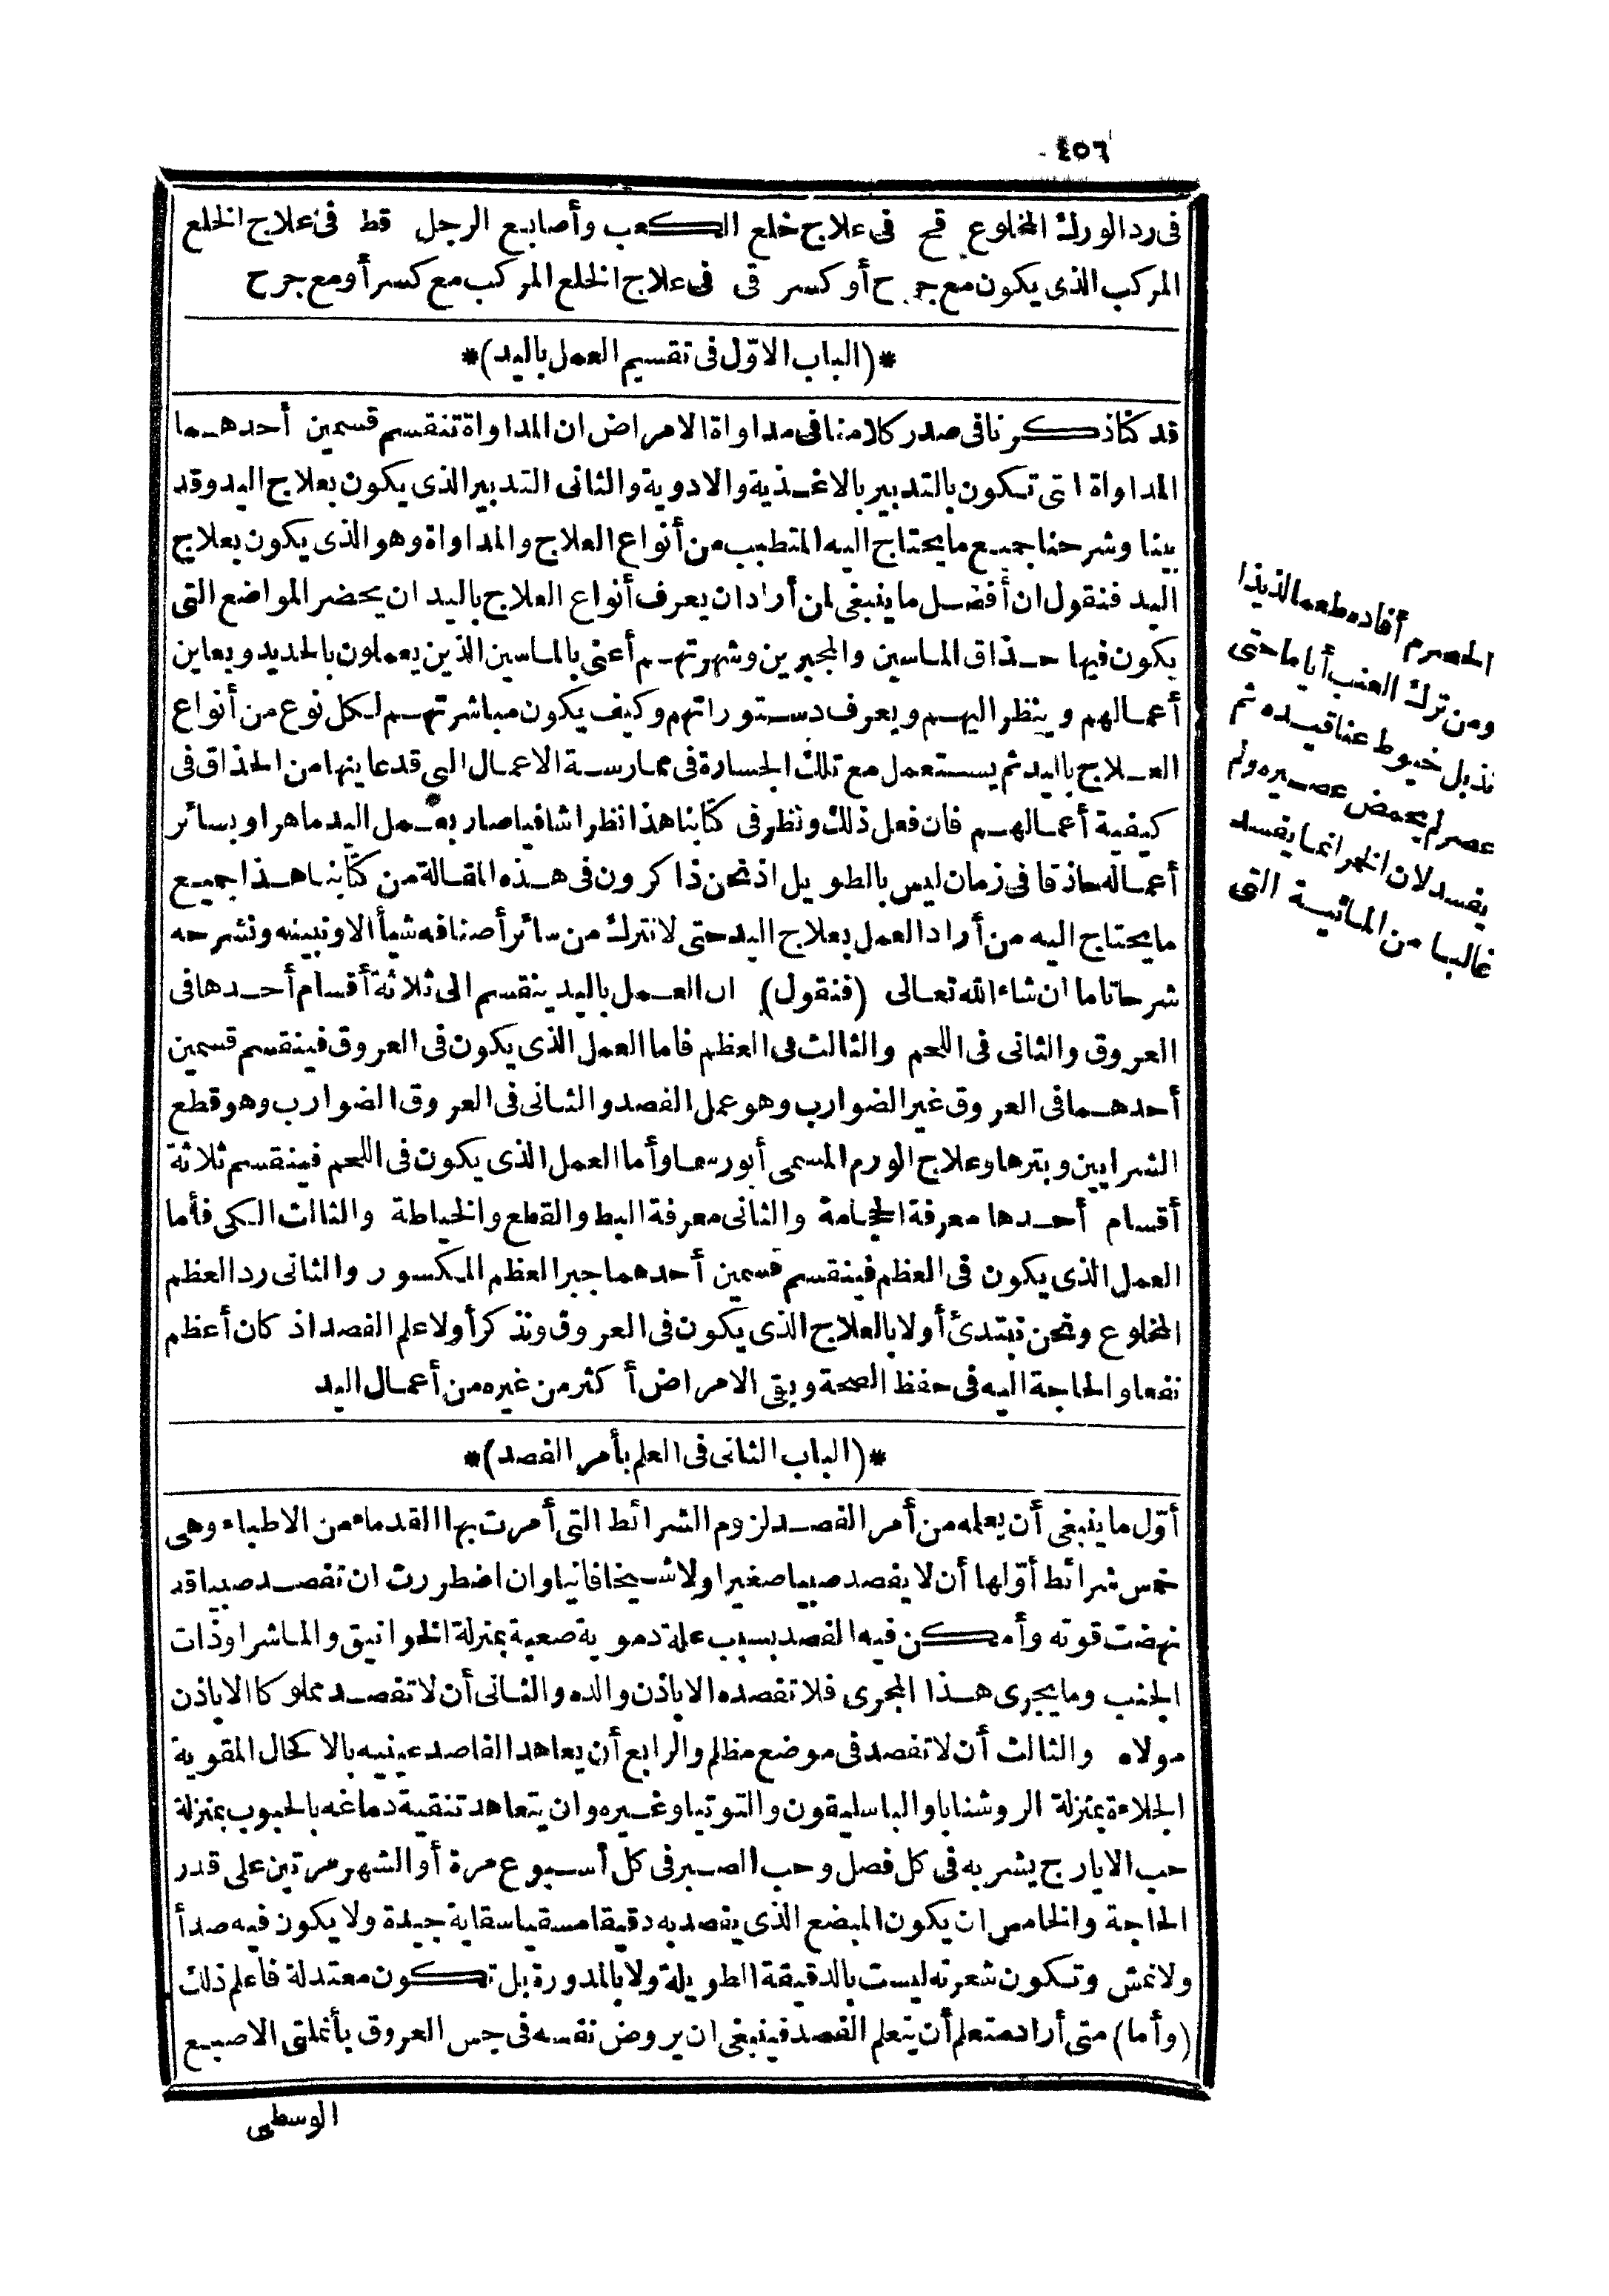 ٤٥٦
فى رد الورك المخلوع قح فى علاج خلع الكعب وأصابع الرجل قط فى علاج الخلع
المركب الذى يكون مع جرح أو كسر قى فى علاج الخلع المركب مع كسر أو مع جرح
*(الباب الاوّل فى تقسيم العمل باليد)*
قد كنا ذكرنا فى صدر كلامنا فى مداواة الامراض ان المداواة تنقسم قسمين أحدهما
المداواة التى تكون بالتدبير بالاغذية والادوية والثانى التدبير الذى يكون بعلاج اليد وقد
بينا وشرحنا جميع ما يحتاج اليه المتطبب من أنواع العلاج والمداواة وهو الذى يكون بعلاج
اليد فنقول ان أفضل ما ينبغى لمن أراد ان يعرف أنواع العلاج باليد ان يحضر المواضع التى
يكون فيها حذاق الماسين والمجبرين وشهرتهم أعنى بالماسين الذين يعملون بالحديد ويعاين
أعمالهم وينظر اليهم ويعرف دستوراتهم وكيف يكون مباشرتهم لكل نوع من أنواع
العلاج باليد ثم يستعمل مع تلك الجسارة فى ممارسة الاعمال التى قد عاينها من الحذاق فى
كيفية أعمالهم فان فعل ذلك ونظر فى كتابنا هذا نظرا شافيا صار بعمل اليد ماهرا وبسائر
أعماله حاذقا فى زمان ليس بالطويل اذ نحن ذاكرون فى هذه المقالة من كتابنا هذا جميع
ما يحتاج اليه من أراد العمل بعلاج اليد حتى لا نترك من سائر أصنافه شيأ الا ونبينه ونشرحه
شرحا تاما ان شاء الله تعالى (فنقول) ان العمل باليد ينقسم الى ثلاثة أقسام أحدها فى
العروق والثانى فى اللحم والثالث فى العظم فاما العمل الذى يكون فى العروق فينقسم قسمين
أحدهما فى العروق غير الضوارب وهو عمل الفصد والثانى فى العروق الضوارب وهو قطع
الشرايين وبترها وعلاج الورم المسمى أبورسما وأما العمل الذى يكون فى اللحم فينقسم ثلاثة
أقسام أحدها معرفة الحجامة والثانى معرفة البط والقطع والخياطة والثالث الكى فأما
العمل الذى يكون فى العظم فينقسم قسمين أحدهما جبر العظم المكسور والثانى رد العظم
المخلوع ونحن نبتدئ أولا بالعلاج الذى يكون فى العروق ونذكر أولا علم الفصد اذ كان أعظم
نفعا والحاجة اليه فى حفظ الصحة وبقى الامراض أكثر من غيره من أعمال اليد
*(الباب الثانى فى العلم بأمر الفصد)*
أوّل ما ينبغى أن يعلمه من أمر الفصد لزوم الشرائط التى أمرت بها القدماء من الاطباء وهى
خمس شرائط أوّلها أن لا يفصد صبيا صغيرا ولا شيخا فانيا وان اضطررت ان تفصد صبيا قد
نهضت قوته وأمكن فيه الفصد بسبب علة دموية صعبة بمنزلة الخوانيق والماشرا وذات
الجنب وما يجرى هذا المجرى فلا تفصده الا باذن والده والثانى أن لا تفصد مملوكا الا باذن
مولاه والثالث أن لا تفصد فى موضع مظلم والرابع أن يعاهد الفاصد عينيه بالاكحال المقوية
الجلاءة بمنزلة الروشنايا والباسليقون والتوتيا وغيره وان يتعاهد تنقية دماغه بالحبوب بمنزلة
حب الايارج يشربه فى كل فصل وحب الصبر فى كل أسبوع مرة أو الشهر مرتين على قدر
الحاجة والخامس ان يكون المبضع الذى يفصد به دقيقا مسقيا سقاية جيدة ولا يكون فيه صدأ
ولا نمش وتكون شعرته ليست بالدقيقة الطويلة ولا بالمدورة بل تكون معتدلة فأعلم ذلك
(وأما) متى أراد متعلم أن يتعلم الفصد فينبغى ان يروض نفسه فى جس العروق بأنملتى الاصبع
الوسطى
الحصرم أفاده طعما لذيذا
ومن ترك العنب أياما حتى
تذبل خيوط عناقيده ثم
عصر لم يحمض عصيره ولم
يفسد لان الخمر انما يفسد
غالبا من المائية التى